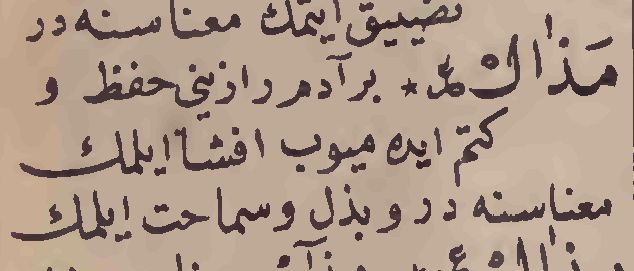 تضييق ايتمك معناسنه در
مَذاك ع * بر آدم رازيني حفظ و
كتم ايده ميوب افشا ايلمك
معناسنه در و بذل و سماحت ايلمك